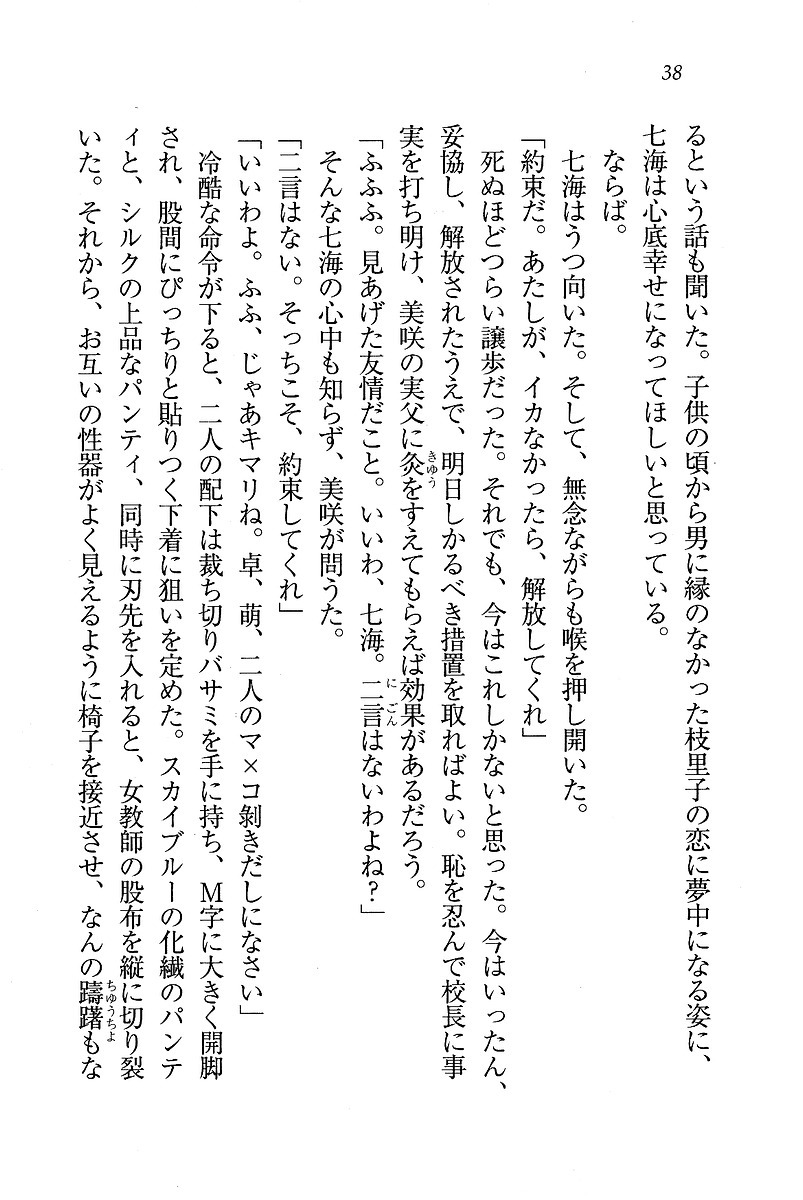 38
るという話も聞いた。子供の頃から男に縁のなかった枝里子の恋に夢中になる姿に、
七海は心底幸せになってほしいと思っている。
ならば。
七海はうつ向いた。そして、無念ながらも喉を押し開いた。
「約束だ。あたしが、イカなかったら、解放してくれ」
死ぬほどつらい譲歩だった。それでも、今はこれしかないと思った。今はいったん、
妥協し、解放されたうえで、明日しかるべき措置を取ればよい。恥を忍んで校長に事
実を打ち明け、美咲の実父に灸をすえてもらえば効果があるだろう。
「ふふふ。見あげた友情だこと。いいわ、七海。二言はないわよね?」
そんな七海の心中も知らず、美咲が問うた。
「二言はない。そっちこそ、約束してくれ」
「いいわよ。ふふ、じゃあキマリね。卓、萌、二人のマ×コ剝きだしになさい」
冷酷な命令が下ると、二人の配下は裁ち切りバサミを手に持ち、M字に大きく開脚
され、股間にぴっちりと貼りつく下着に狙いを定めた。スカイブルーの化繊のパンテ
ィと、シルクの上品なパンティ、同時に刃先を入れると、女教師の股布を縦に切り裂
いた。それから、お互いの性器がよく見えるように椅子を接近させ、なんの躊躇もな